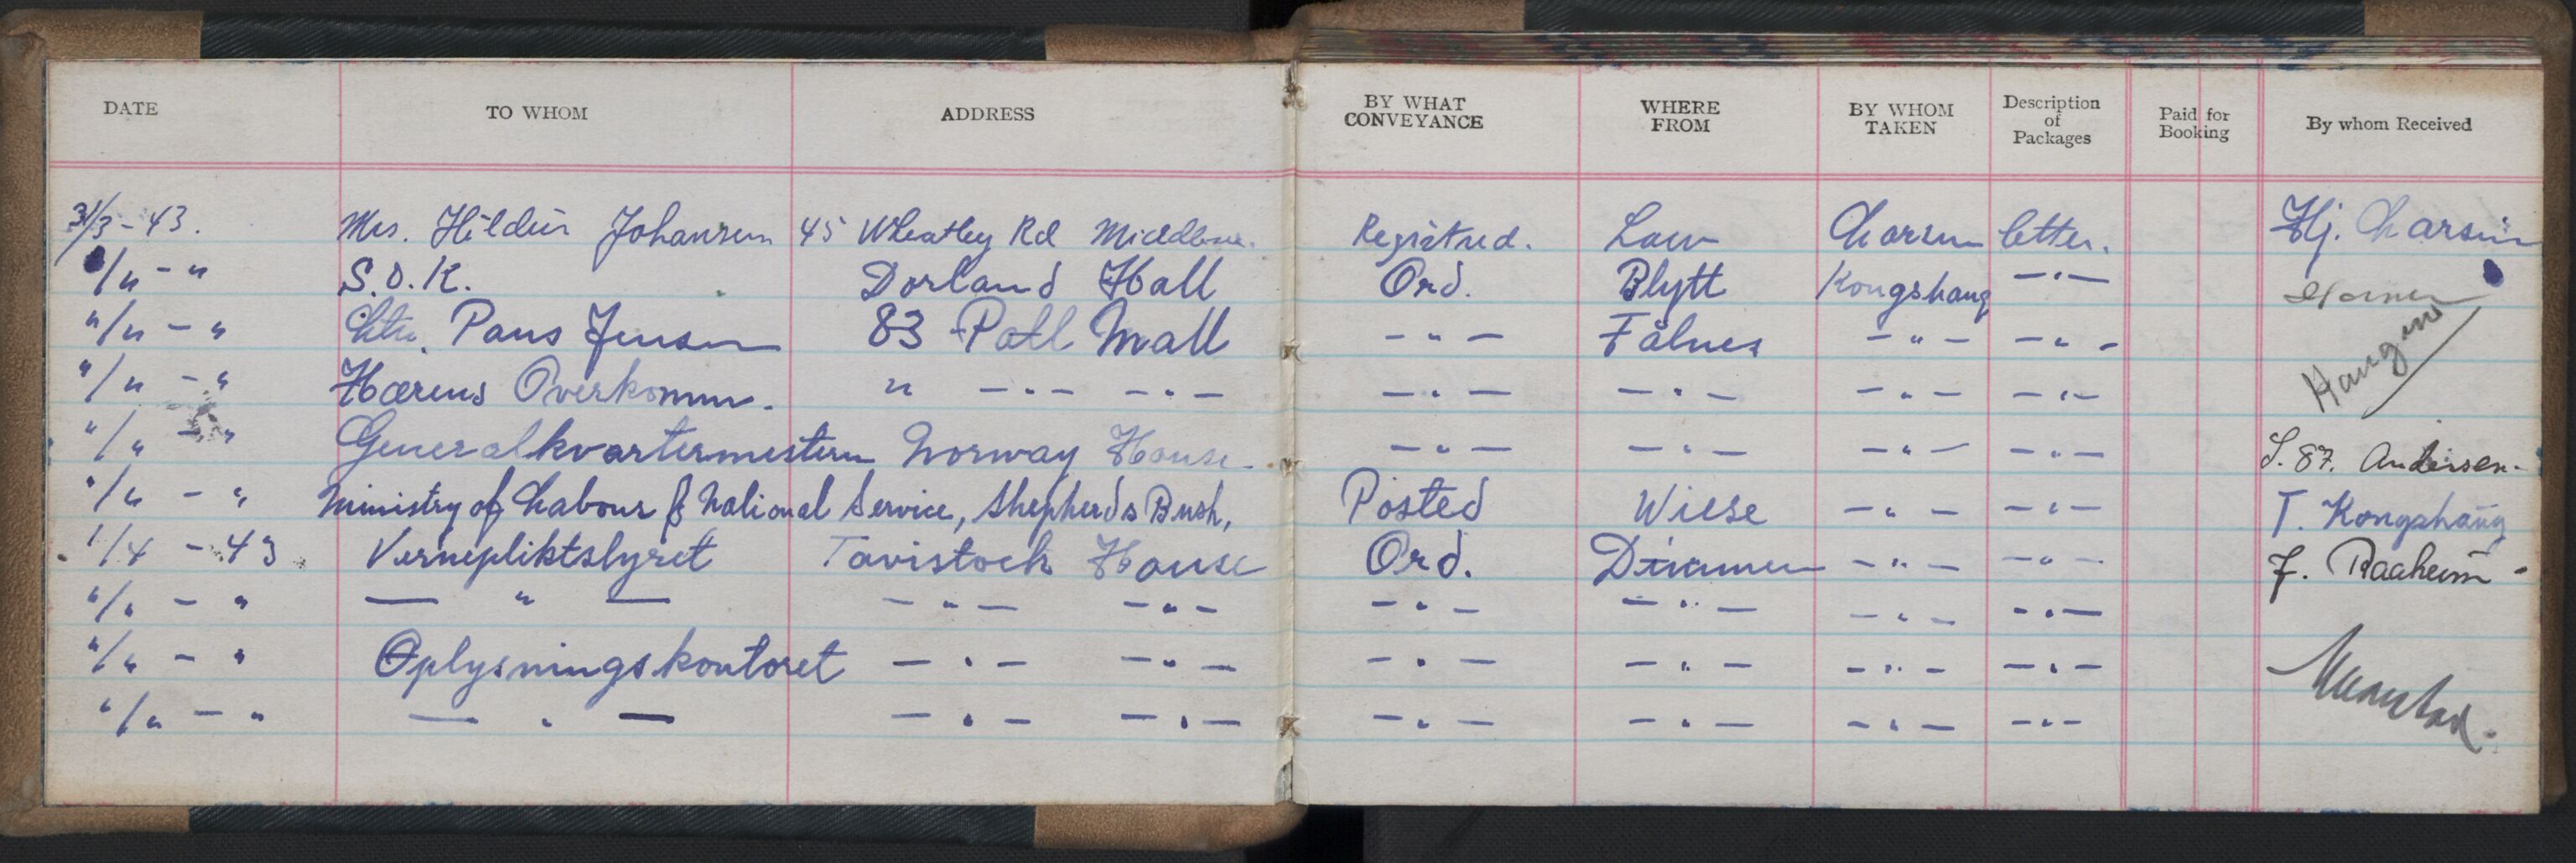 DATE TO WHOM ADDRESS BY WHAT CONVEYANCE WHERE FROM BY WHOM TAKEN Description of Packages Paid for Booking By whom Received
31/3 - 43. Mrs. Hildur Johansen 45 Wheatley Rd Registred. Larsen letter. Hj. Larsen
"/" - " S.O.K. Dorland Hall Ord. Blytt Kongshaug - " -
"/" - " Paus Jensen 83 Pall Mall - " - Fålnes - " - - " -
"/" - " Hærens Overkomm. " - " - - " - - " - - " - - " - - " - Haugen
"/" - " Generalkvartermestern Norway House - " - - " - - " - - " - S. 87. Andersen.
"/" - " Ministry of Labour & National Service, Shepherds Bush, Posted Wiese - " - - " - T. Kongshaug
1/4 - 43 Vernepliktstyret Tavistock House Ord. - " - - " - F. Raaheim
"/" - " - " - - " - - " - - " - - " - - " - - " -
"/" - " Oplysningskontoret - " - - " - - " - - " - - " - - " -
"/" - " - " - - " - - " - - " - - " - - " - - " -